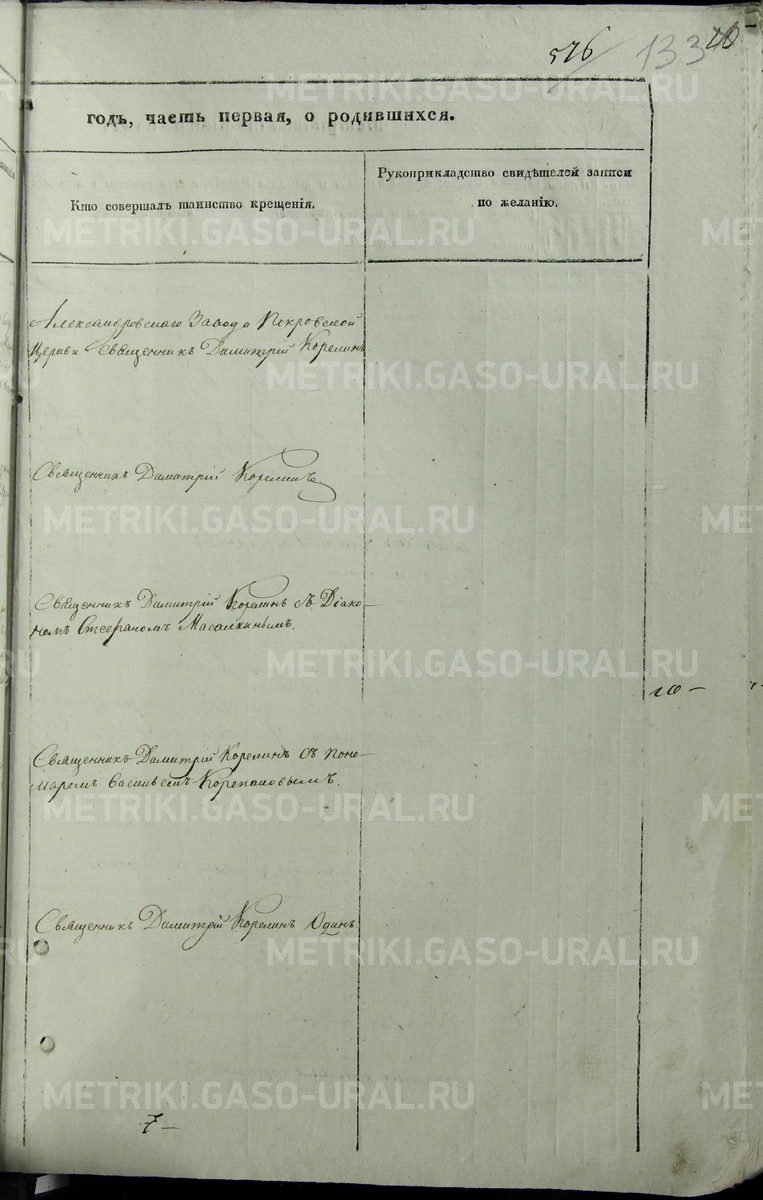 576 133 20
METRIKI.GASO-URAL.RU
годъ, часть первая, о родившихся.
Кто совершалъ таинство крещенія.
Рукоприкладство свидѣтелей записи
по желанію.
METRIKI.GASO-URAL.RU
Александровскаго Завода Покровской
Церкви Священникъ Димитрій Корелинъ
METRIKI.GASO-URAL.RU
Священникъ Димитрій Корелинъ
METRIKI.GASO-URAL.RU
Священникъ Димитрій Корелинъ съ Діако-
номъ Масалкинымъ.
METRIKI.GASO-URAL.RU
10 –
Священникъ Димитрій Корелинъ съ поно-
маремъ Корепановымъ.
METRIKI.GASO-URAL.RU
Священникъ Димитрій Корелинъ Одинъ.
METRIKI.GASO-URAL.RU
METRIKI.GASO-URAL.RU
7 –